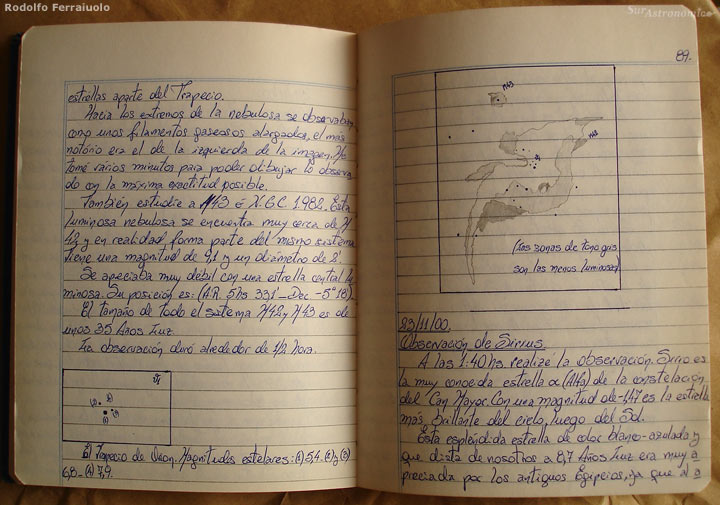 Rodolfo Ferraiuolo
SurAstronómico
estrellas aparte del Trapecio.
Hacia los extremos de la nebulosa se observaban
como unos filamentos gaseosos alargados, el mas
notorio era el de la izquierda de la imagen. Me
tomé varios minutos para poder dibujar lo observa
do con la máxima exactitud posible.
También estudie a M43 ó N.G.C. 1982. Esta
luminosa nebulosa se encuentra muy cerca de M
42 y en realidad forma parte del mismo sistema
Tiene una magnitud de 9,1 y un diámetro de 2'
Se apreciaba muy débil con una estrella central lu
minosa. Su posición es: (A.R. 5hs 331'_ Dec. -5° 18')
El tamaño de todo el sistema M42 y M43 es de
unos 35 Años Luz.
La observación duró alrededor de 1/2 hora.
(2) (3)
(1)
(4)
El Trapecio de Orion. Magnitudes estelares: (1) 5,4 (2) y (3)
6,8 - (4) 7,9.
89.
M43
M42
(las zonas de tono gris
son las menos luminosas)
23/11/00
Observación de Sirius.
A las 1:40 hs realizé la observación. Sirio es
la muy conocida estrella α (Alfa) de la constelación
del Can Mayor. Con una magnitud de -1,47 es la estrella
más brillante del cielo, luego del Sol.
Esta espléndida estrella de color blanco-azulada y
que dista de nosotros a 8,7 Años Luz era muy a
preciada por los antiguos Egipcios, ya que al a